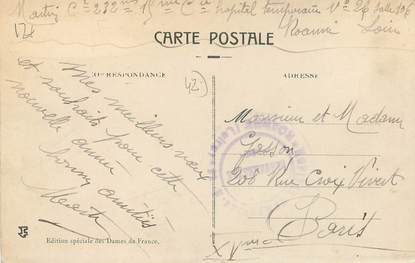 Martin C^l 232^me 15^me C^ie hôpital temporaire N° 26 salle 106
Roanne Loire
CARTE POSTALE
CORRESPONDANCE
ADRESSE
42
Mes meilleurs vœux
et souhaits pour cette
nouvelle année
bonnes amitiés
Martin
Monsieur et Madame
208 Rue Croix Nivert
Paris
XV^me
Edition spéciale des Dames de France.